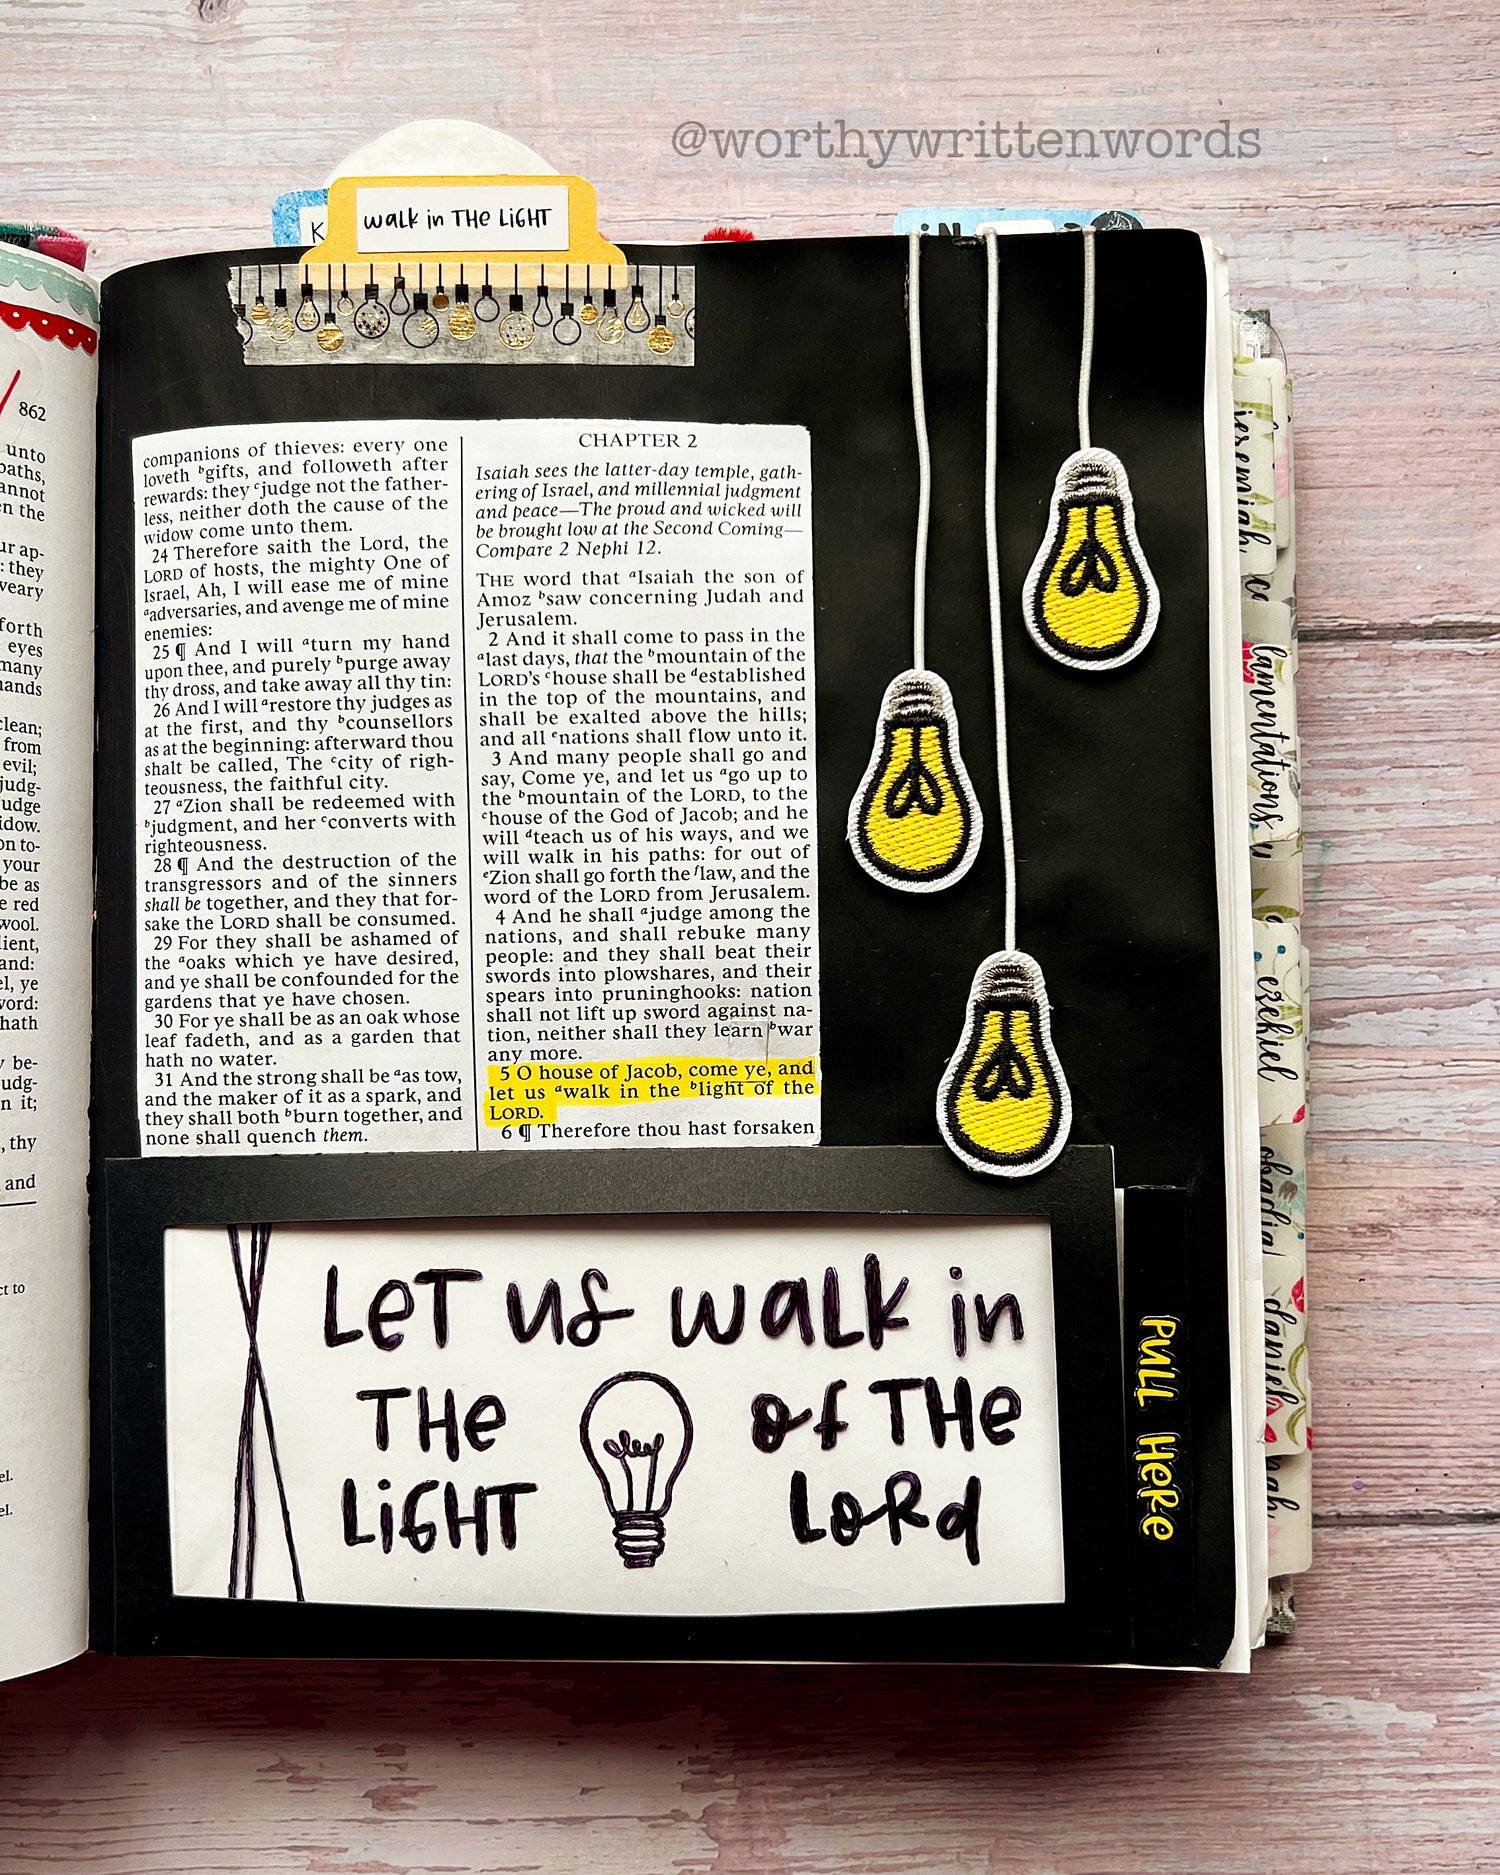 @worthywrittenwords
walk in THE LiGHT
K
iN
862
unto
paths,
annot
en the
ur ap-
: they
weary
forth
eyes
many
hands
clean;
from
evil;
judg-
udge
idow.
on to-
your
be as
e red
wool.
dient,
and:
el, ye
word:
hath
y be-
udg-
n it;
, thy
and
ct to
el.
el.
companions of thieves: every one
loveth ᵇgifts, and followeth after
rewards: they ᶜjudge not the father-
less, neither doth the cause of the
widow come unto them.
24 Therefore saith the Lord, the
LORD of hosts, the mighty One of
Israel, Ah, I will ease me of mine
ᵃadversaries, and avenge me of mine
enemies:
25 ¶ And I will ᵃturn my hand
upon thee, and purely ᵇpurge away
thy dross, and take away all thy tin:
26 And I will ᵃrestore thy judges as
at the first, and thy ᵇcounsellors
as at the beginning: afterward thou
shalt be called, The ᶜcity of righ-
teousness, the faithful city.
27 ᵃZion shall be redeemed with
ᵇjudgment, and her ᶜconverts with
righteousness.
28 ¶ And the destruction of the
transgressors and of the sinners
shall be together, and they that for-
sake the LORD shall be consumed.
29 For they shall be ashamed of
the ᵃoaks which ye have desired,
and ye shall be confounded for the
gardens that ye have chosen.
30 For ye shall be as an oak whose
leaf fadeth, and as a garden that
hath no water.
31 And the strong shall be ᵃas tow,
and the maker of it as a spark, and
they shall both ᵇburn together, and
none shall quench them.
CHAPTER 2
Isaiah sees the latter-day temple, gath-
ering of Israel, and millennial judgment
and peace—The proud and wicked will
be brought low at the Second Coming—
Compare 2 Nephi 12.
THE word that ᵃIsaiah the son of
Amoz ᵇsaw concerning Judah and
Jerusalem.
2 And it shall come to pass in the
ᵃlast days, that the ᵇmountain of the
LORD'S ᶜhouse shall be ᵈestablished
in the top of the mountains, and
shall be exalted above the hills;
and all ᵉnations shall flow unto it.
3 And many people shall go and
say, Come ye, and let us ᵃgo up to
the ᵇmountain of the LORD, to the
ᶜhouse of the God of Jacob; and he
will ᵈteach us of his ways, and we
will walk in his paths: for out of
ᵉZion shall go forth the ᶠlaw, and the
word of the LORD from Jerusalem.
4 And he shall ᵃjudge among the
nations, and shall rebuke many
people: and they shall beat their
swords into plowshares, and their
spears into pruninghooks: nation
shall not lift up sword against na-
tion, neither shall they learn ᵇwar
any more.
5 O house of Jacob, come ye, and
let us ᵃwalk in the ᵇlight of the
LORD.
6 ¶ Therefore thou hast forsaken
LeT us walk in
THe of THe
LiGHT LoRd
PULL HeRe
jeremiah
lamentations
ezekiel
obadiah
daniel